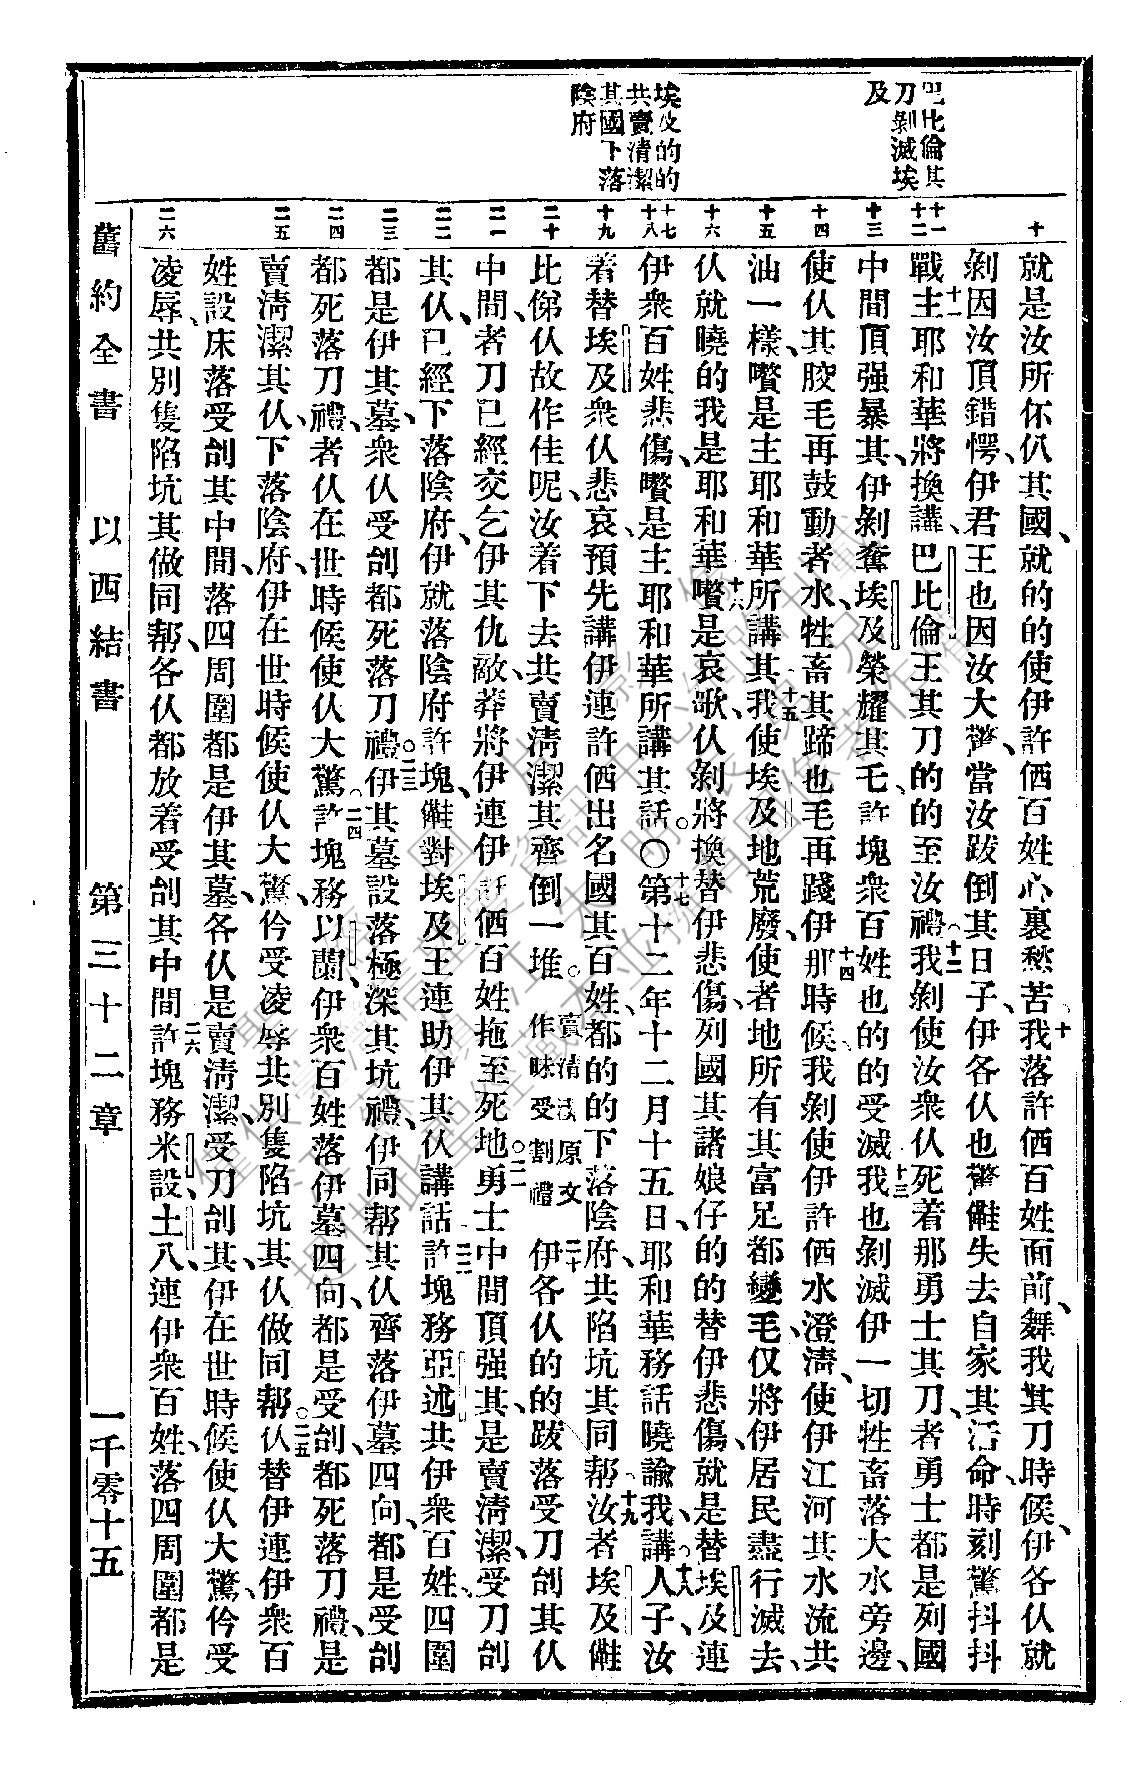 巴比倫其
刀剝滅埃
及
埃及的的
共賣清潔
其國下落
陰府
十
十一
十二
十三
十四
十五
十六
十七
十八
十九
二十
二一
二二
二三
二四
二五
二六
就是汝所伓仈其國、就的的使伊許𠄡百姓心裏愁苦、十我落許𠄡百姓面前、舞我其刀時候、伊各仈就
剝因汝頂錯愕、伊君王也因汝大驚、當汝跋倒其日子、伊各仈也驚𣍐失去自家其活命、時刻驚抖抖
戰、十一主耶和華將換講、巴比倫王其刀的的至汝禮、十二我剝使汝衆仈死着那勇士其刀、者勇士都是列國
中間頂强暴其、伊剝奪埃及榮耀其乇、許塊衆百姓也的的受滅、十三我也剝滅伊一切牲畜落大水旁邊、
使仈其骹毛再鼓動者水、牲畜其蹄也毛再踐伊、十四那時候我剝使伊許𠄡水澄清、使伊江河其水流共
油一樣、嚽是主耶和華所講其、十五我使埃及地荒廢、使者地所有其富足都變毛、仅將伊居民盡行滅去、
仈就曉的我是耶和華、十六嚽是哀歌、仈剝將換替伊悲傷、列國其諸娘仔的的替伊悲傷、就是替埃及連
伊衆百姓悲傷、嚽是主耶和華所講其話。○十七第十二年十二月十五日、耶和華務話曉諭我講、十八人子、汝
着替埃及衆仈悲哀、預先講伊連許𠄡出名國其百姓、都的的下落陰府、共陷坑其同帮、十九汝者埃及𣍐
比俤仈故作佳呢、汝着下去共賣清潔其齊倒一堆。賣清潔原文作味受割禮二十伊各仈的的跋落受刀刣其仈
中間、者刀已經交乞伊其仇敵、莽將伊連伊許𠄡百姓拖至死地、二一勇士中間頂强其、是賣清潔、受刀刣
其仈、已經下落陰府、伊就落陰府許塊、𣍐對埃及王連助伊其仈講話、二二許塊務亞述共伊衆百姓、四圍
都是伊其墓、衆仈受刣都死落刀禮。二三伊其墓設落極深其坑禮、伊同帮其仈齊落伊墓四向、都是受刣
都死落刀禮、者仈在世時候使仈大驚。二四許塊務以蘭、伊衆百姓落伊墓四向、都是受刣、都死落刀禮、是
賣清潔其仈、下落陰府、伊在世時候使仈大驚、仱受凌辱共別隻陷坑其仈做同帮。二五仈替伊連伊衆百
姓設床落受刣其中間、落四周圍都是伊其墓、各仈是賣清潔、受刀刣其、伊在世時候使仈大驚、仱受
凌辱、共別隻陷坑其做同帮、各仈都放着受刣其中間、二六許塊務米設、土八連伊衆百姓、落四周圍都是
舊約全書　以西結書　第三十二章　一千零十五